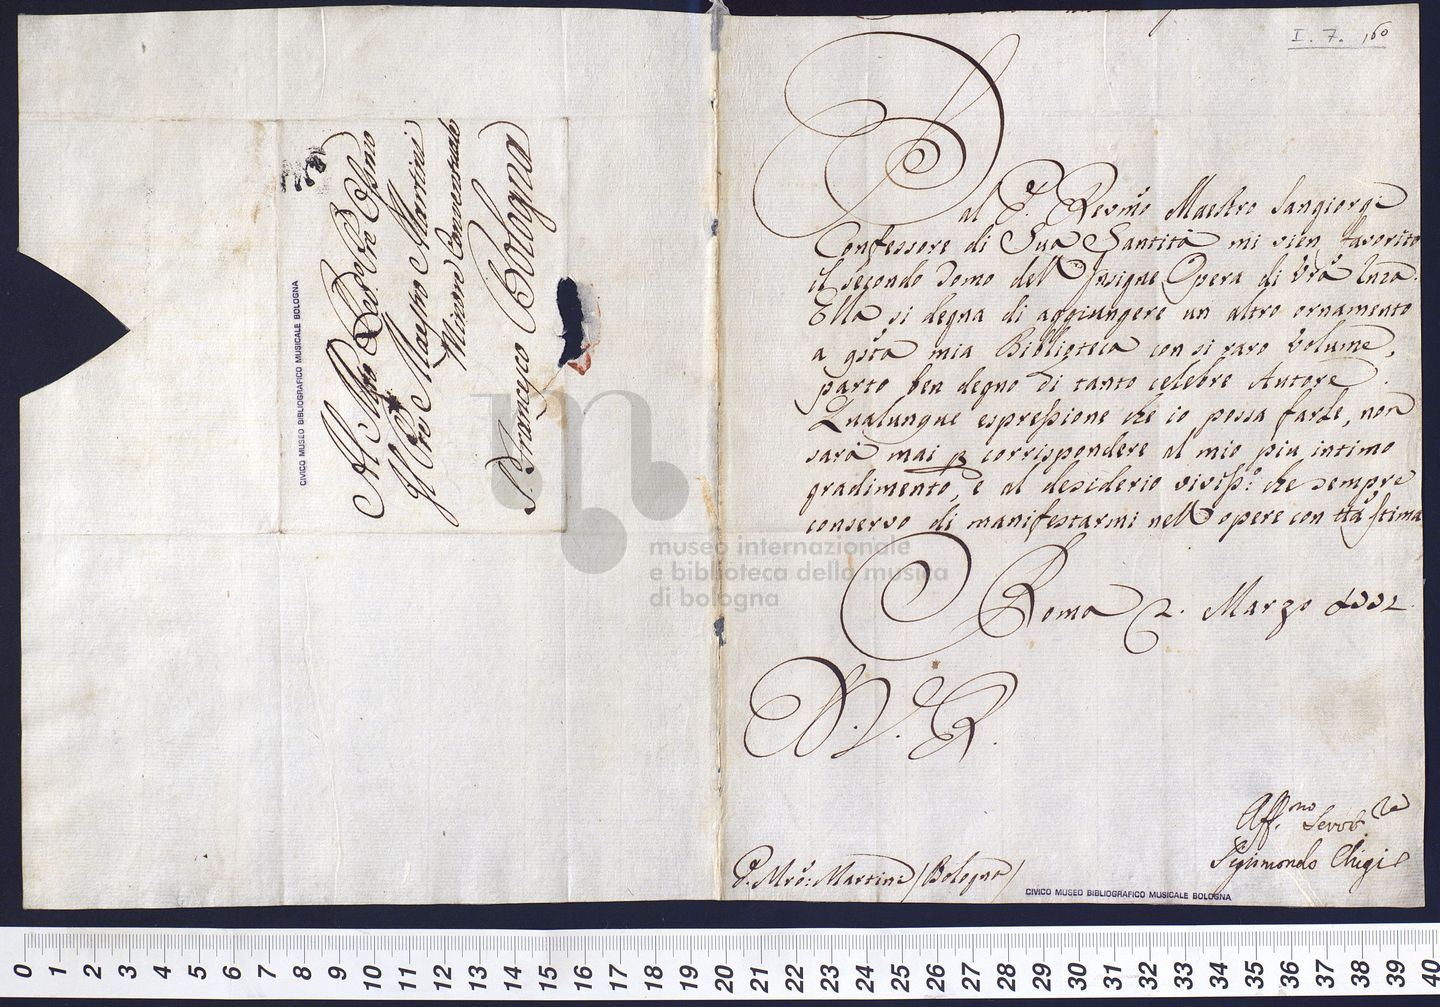 I. 7. 160
Dal P.re Rev̄mo Maestro Sangiorgi
Confessore di Sua Santità mi vien favorito
il secondo Tomo dell'Insigne Opera di Vrã
Ella si degna di aggiungere un altro ornamento
a q̃sta mia Biblioteca con sì raro Volume,
parto ben degno di tanto celebre Autore.
Qualunque espressione che io possa farle, non
sarà mai p corrispondere al mio più intimo
gradimento, e al desiderio viviss.º che sempre
conservo di manifestarmi nell'opere con tt̃a stima
Roma 2. Marzo 1772
V. R.
Aff.mo Serv.re
Sigismondo Chigi
P. Mrõ: Martini (Bologna)
CIVICO MUSEO BIBLIOGRAFICO MUSICALE BOLOGNA
Al Mto Rev.do Pre Ossmo
Il Pre Maestro Martini
Minore Conventuale
S. Francesco Bologna
CIVICO MUSEO BIBLIOGRAFICO MUSICALE BOLOGNA
museo internazionale
e biblioteca della musica
di bologna
0 1 2 3 4 5 6 7 8 9 10 11 12 13 14 15 16 17 18 19 20 21 22 23 24 25 26 27 28 29 30 31 32 33 34 35 36 37 38 39 40